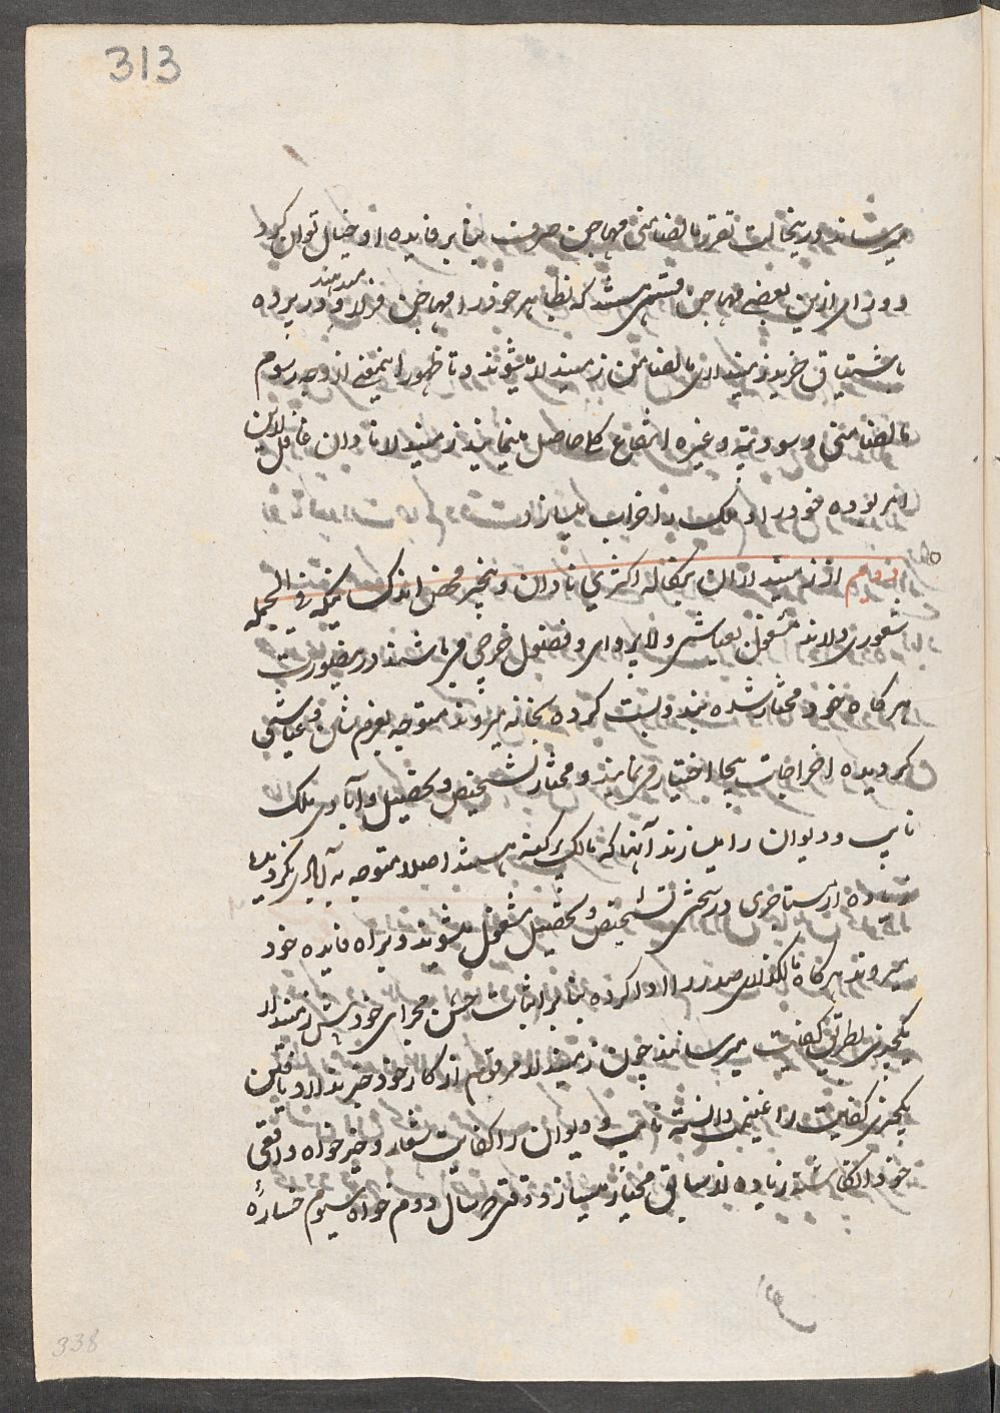 313
میرساند درینحالت تقرر مالضامنی مهاجن صرف بنابر فایده او خیال توان کرد
و ورای ازین بعضے مهاجن قسمی هستند که بظاهر خود را مهاجن قرار میدهند و در پرده
باشتیاق خرید زمینداری مالضامن زمیندار میشوند و تا ظهور اینمعنے از وجه رسوم
مالضامنی و سود بته و غیره انتفاع کلی حاصل مینمایند زمیندار نادان غافل ازین
امر بوده خود را و ملک را خراب میسازد
دویم از زمینداران بنگاله اکثری نادان و بیخبر محض اندک نیکه فی الجمله
شعوری دارند مشغول بعیاشی و لاپروای و فضول خرچی میباشند درینصورت
هر گاه خود مختار شده بندوبست کرده بخانه میروند متوجه بعزم شان و عیاشی
گردیده اخراجات بیجا اختیار میفرمایند و مختار تشخیص و تحصیل و آبادی ملک
نایب و دیوان را میسازند آنها که مالک پرگنه هستند اصلا متوجه به آبادی نگردیده
زیاده از مستاجری در سختی تشخیص و تحصیل مشغول میشوند و براه فایده خود
میروند هر گاه مالگذاری صدر را ادا کرده بنابر اثبات حسن مجرای خود پیش زمیندار
یکچیزی بطریق کفایت میرسانند چون زمیندار مرقوم از کار خود خبر ندارد یافتن
یکچیزی کفایت را غنیمت دانسته نایب و دیوان را کفایت شعار و خیرخواه واقعی
خود انگاشته زیاده از سابق مختار میسازد وقتی در سال دوم خواه سیوم خساره
338